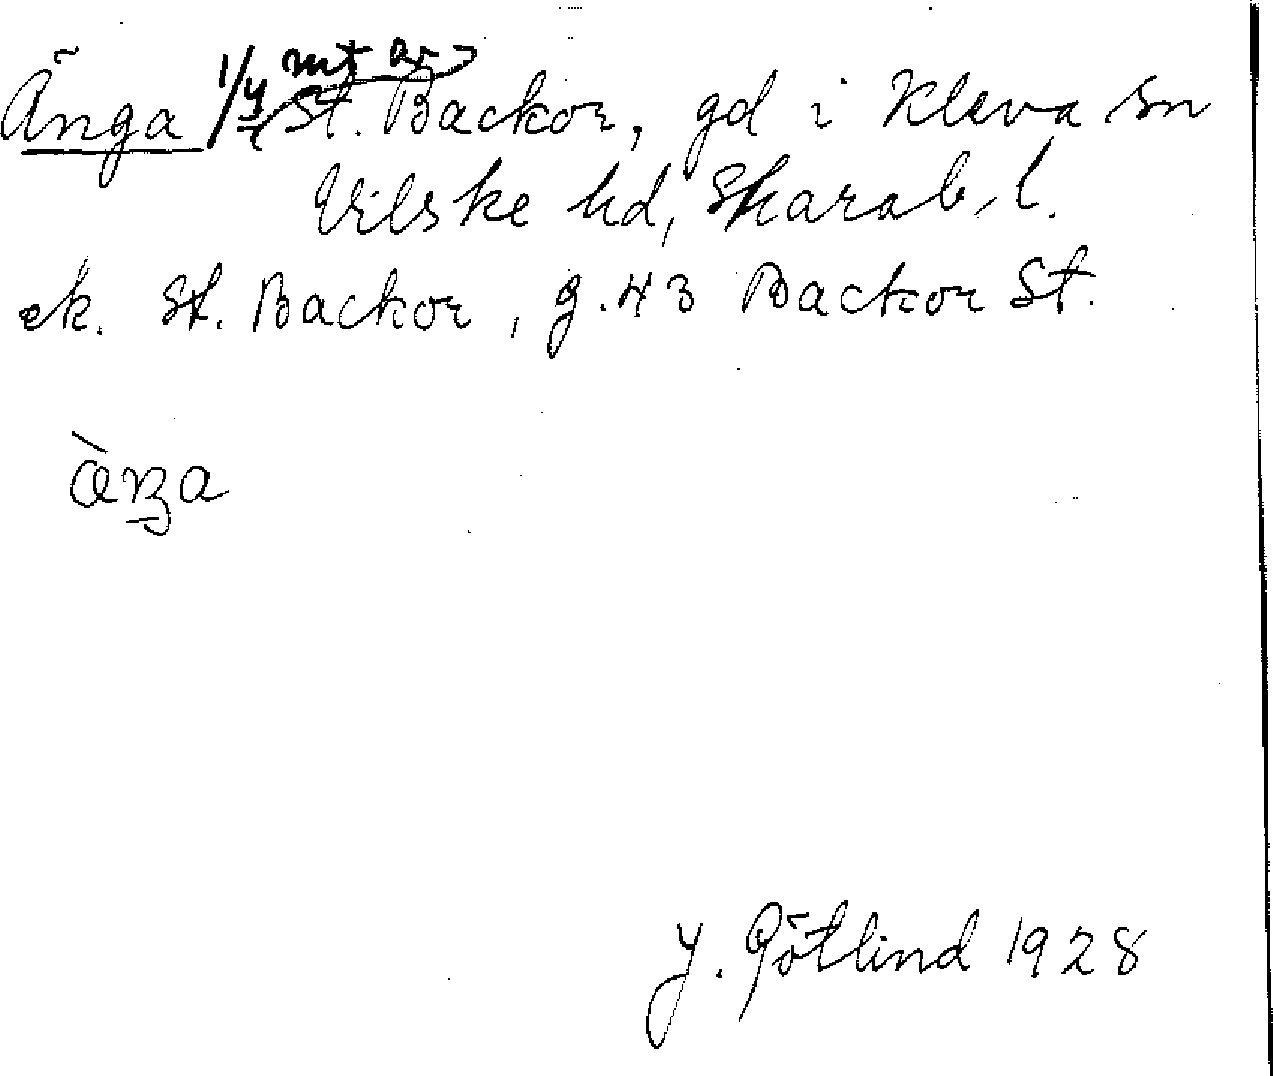 Änga 1/4 mt av St. Backor, gd i Kleva sn
Vilske hd, Skarab. l.
ek. St. Backor, g. 43 Backor St.
J. Götlind 1928